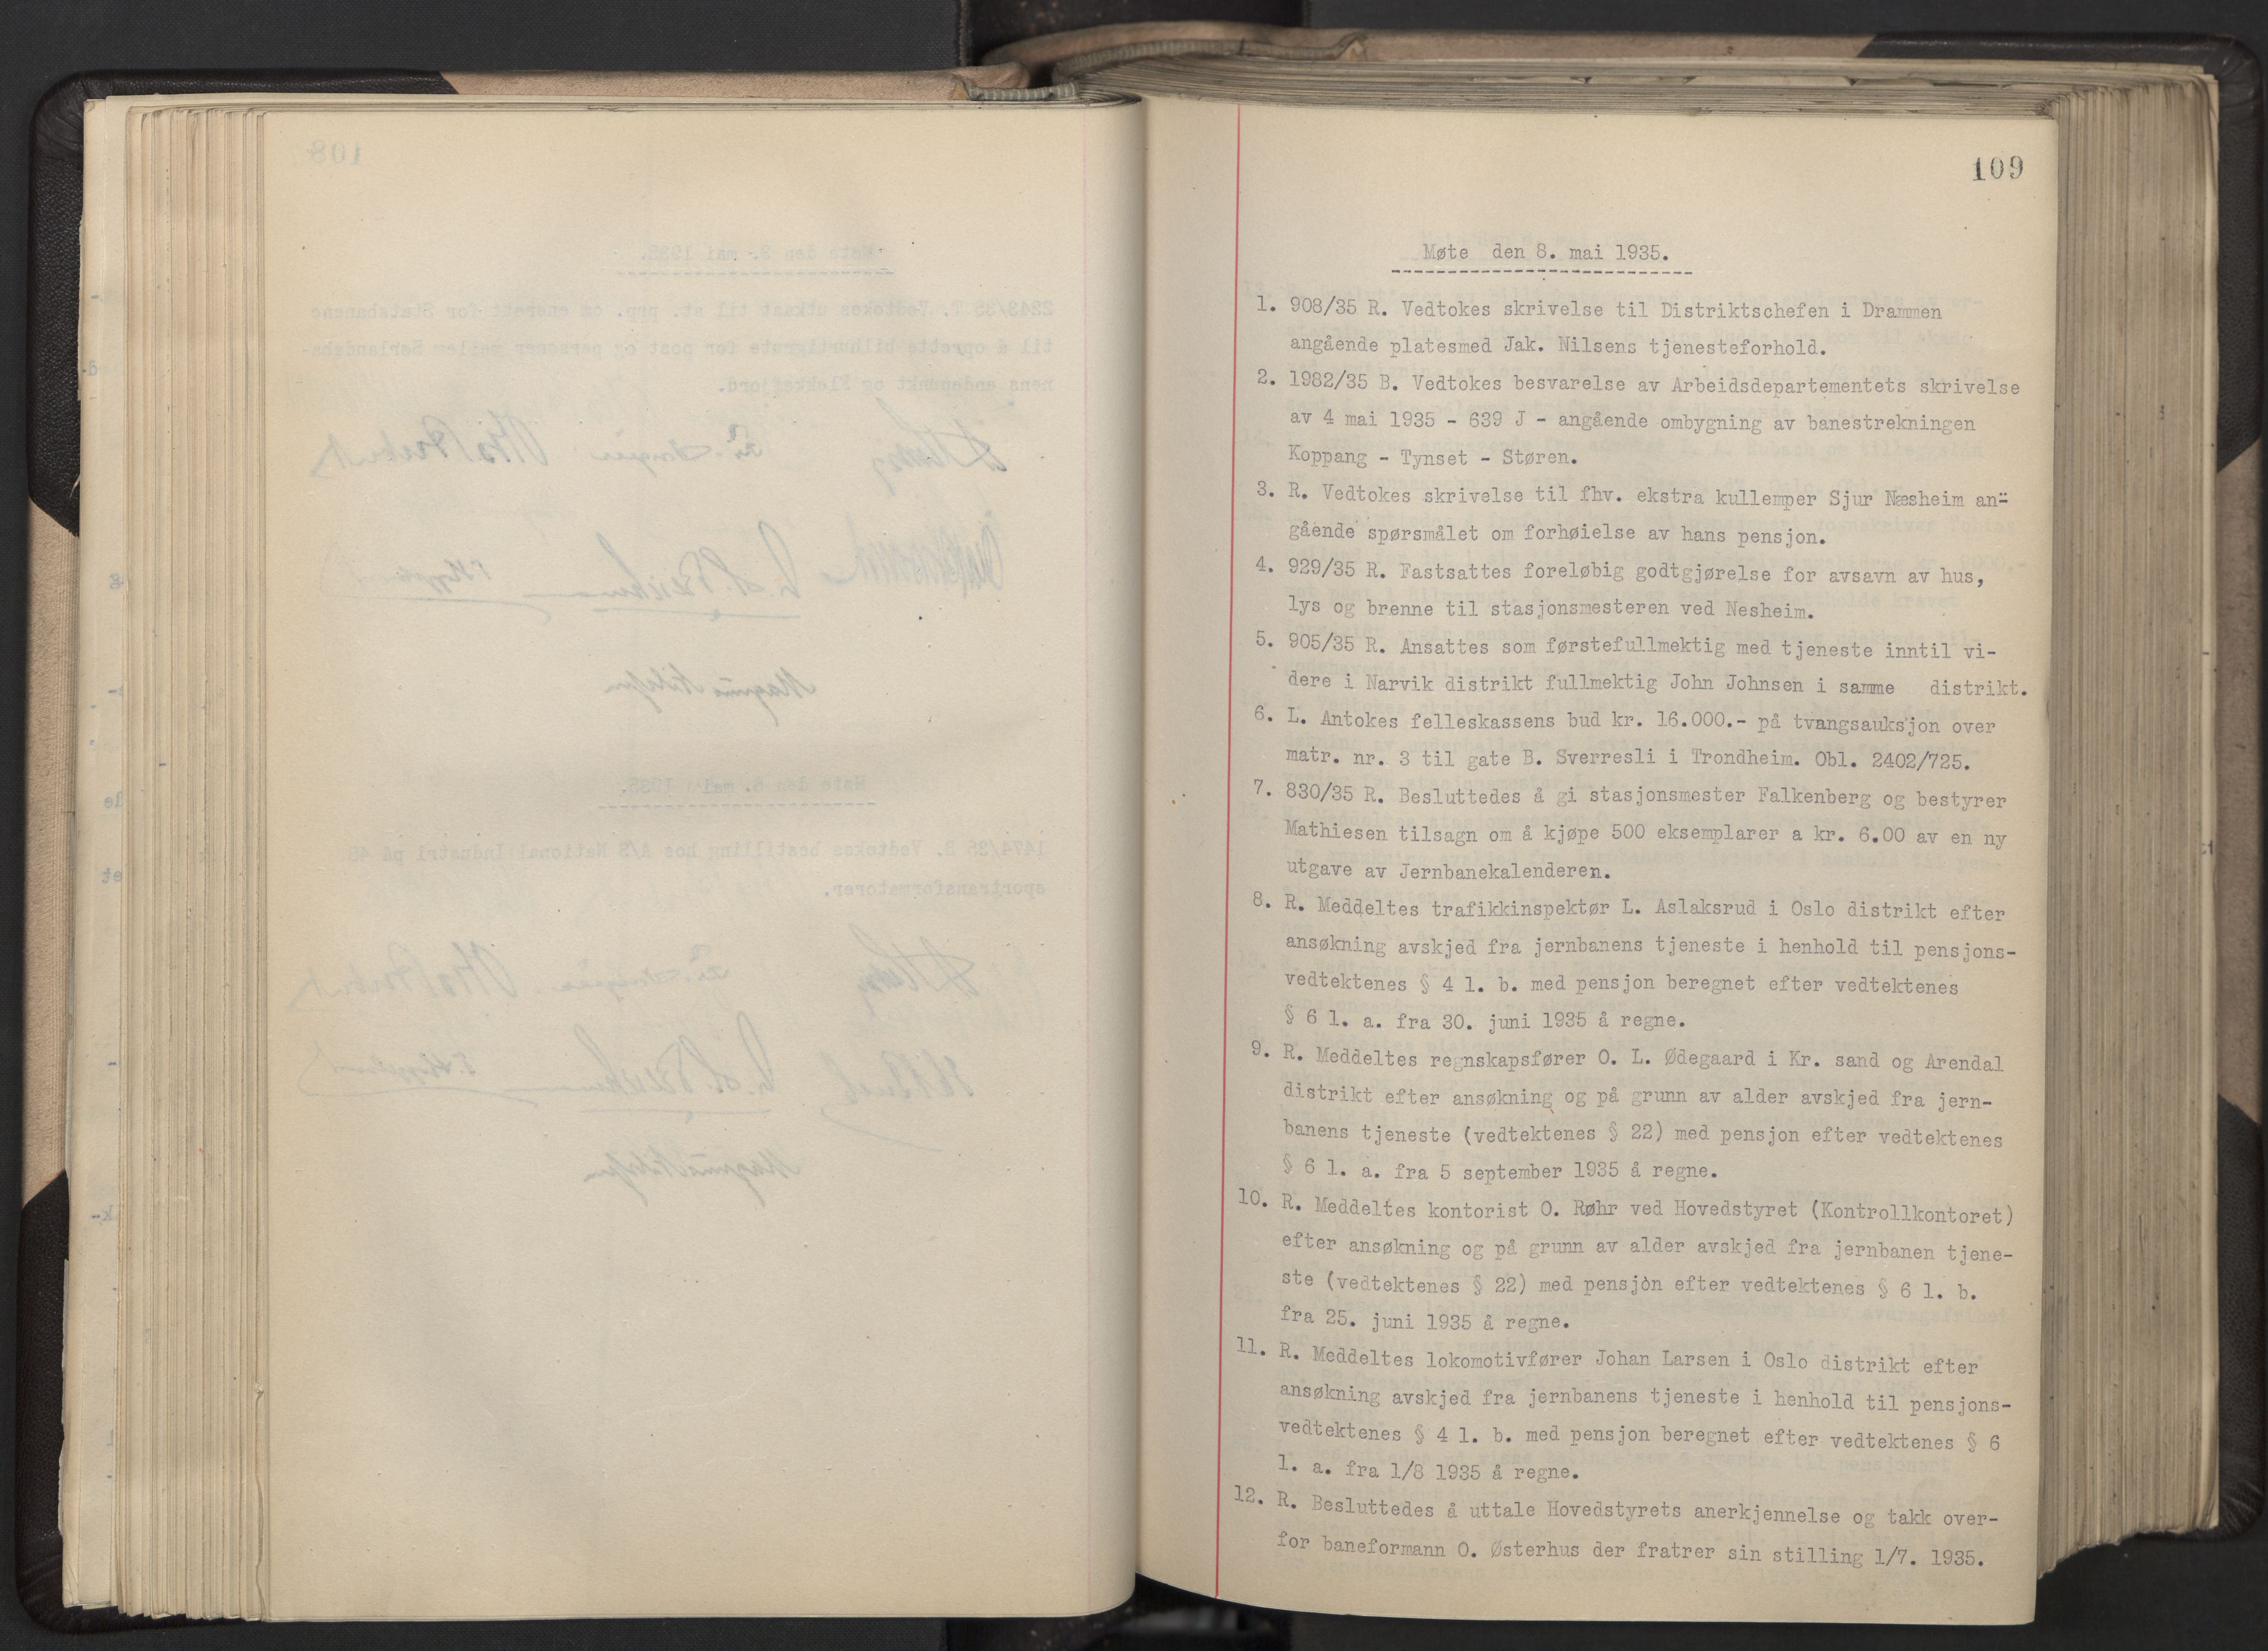 109
Møte den 8. mai 1935.
1. 908/35 R. Vedtokes skrivelse til Distriktschefen i Drammen
angående platesmed Jak. Nilsens tjenesteforhold.
2. 1982/35 B. Vedtokes besvarelse av Arbeidsdepartementets skrivelse
av 4 mai 1935 - 639 J - angående ombygning av banestrekningen
Koppang - Tynset - Støren.
3. R. Vedtokes skrivelse til fhv. ekstra kullemper Sjur Næsheim an-
gående spørsmålet om forhøielse av hans pensjon.
4. 929/35 R. Fastsattes foreløbig godtgjørelse for avsavn av hus,
lys og brenne til stasjonsmesteren ved Nesheim.
5. 905/35 R. Ansattes som førstefullmektig med tjeneste inntil vi-
dere i Narvik distrikt fullmektig John Johnsen i samme distrikt.
6. L. Antokes felleskassens bud kr. 16.000.- på tvangsauksjon over
matr. nr. 3 til gate B. Sverresli i Trondheim. Obl. 2402/725.
7. 830/35 R. Besluttedes å gi stasjonsmester Falkenberg og bestyrer
Mathiesen tilsagn om å kjøpe 500 eksemplarer a kr. 6.00 av en ny
utgave av Jernbanekalenderen.
8. R. Meddeltes trafikkinspektør L. Aslaksrud i Oslo distrikt efter
ansøkning avskjed fra jernbanens tjeneste i henhold til pensjons-
vedtektenes § 4 l. b. med pensjon beregnet efter vedtektenes
§ 6 l. a. fra 30. juni 1935 å regne.
9. R. Meddeltes regnskapsfører O. L. Ødegaard i Kr. sand og Arendal
distrikt efter ansøkning og på grunn av alder avskjed fra jern-
banens tjeneste (vedtektenes § 22) med pensjon efter vedtektenes
§ 6 l. a. fra 5 september 1935 å regne.
10. R. Meddeltes kontorist O. Røhr ved Hovedstyret (Kontrollkontoret)
efter ansøkning og på grunn av alder avskjed fra jernbanen tjene-
ste (vedtektenes § 22) med pensjon efter vedtektenes § 6 l. b.
fra 25. juni 1935 å regne.
11. R. Meddeltes lokomotivfører Johan Larsen i Oslo distrikt efter
ansøkning avskjed fra jernbanens tjeneste i henhold til pensjons-
vedtektenes § 4 l. b. med pensjon beregnet efter vedtektenes § 6
l. a. fra 1/8 1935 å regne.
12. R. Besluttedes å uttale Hovedstyrets anerkjennelse og takk over-
for baneformann O. Østerhus der fratrer sin stilling 1/7. 1935.